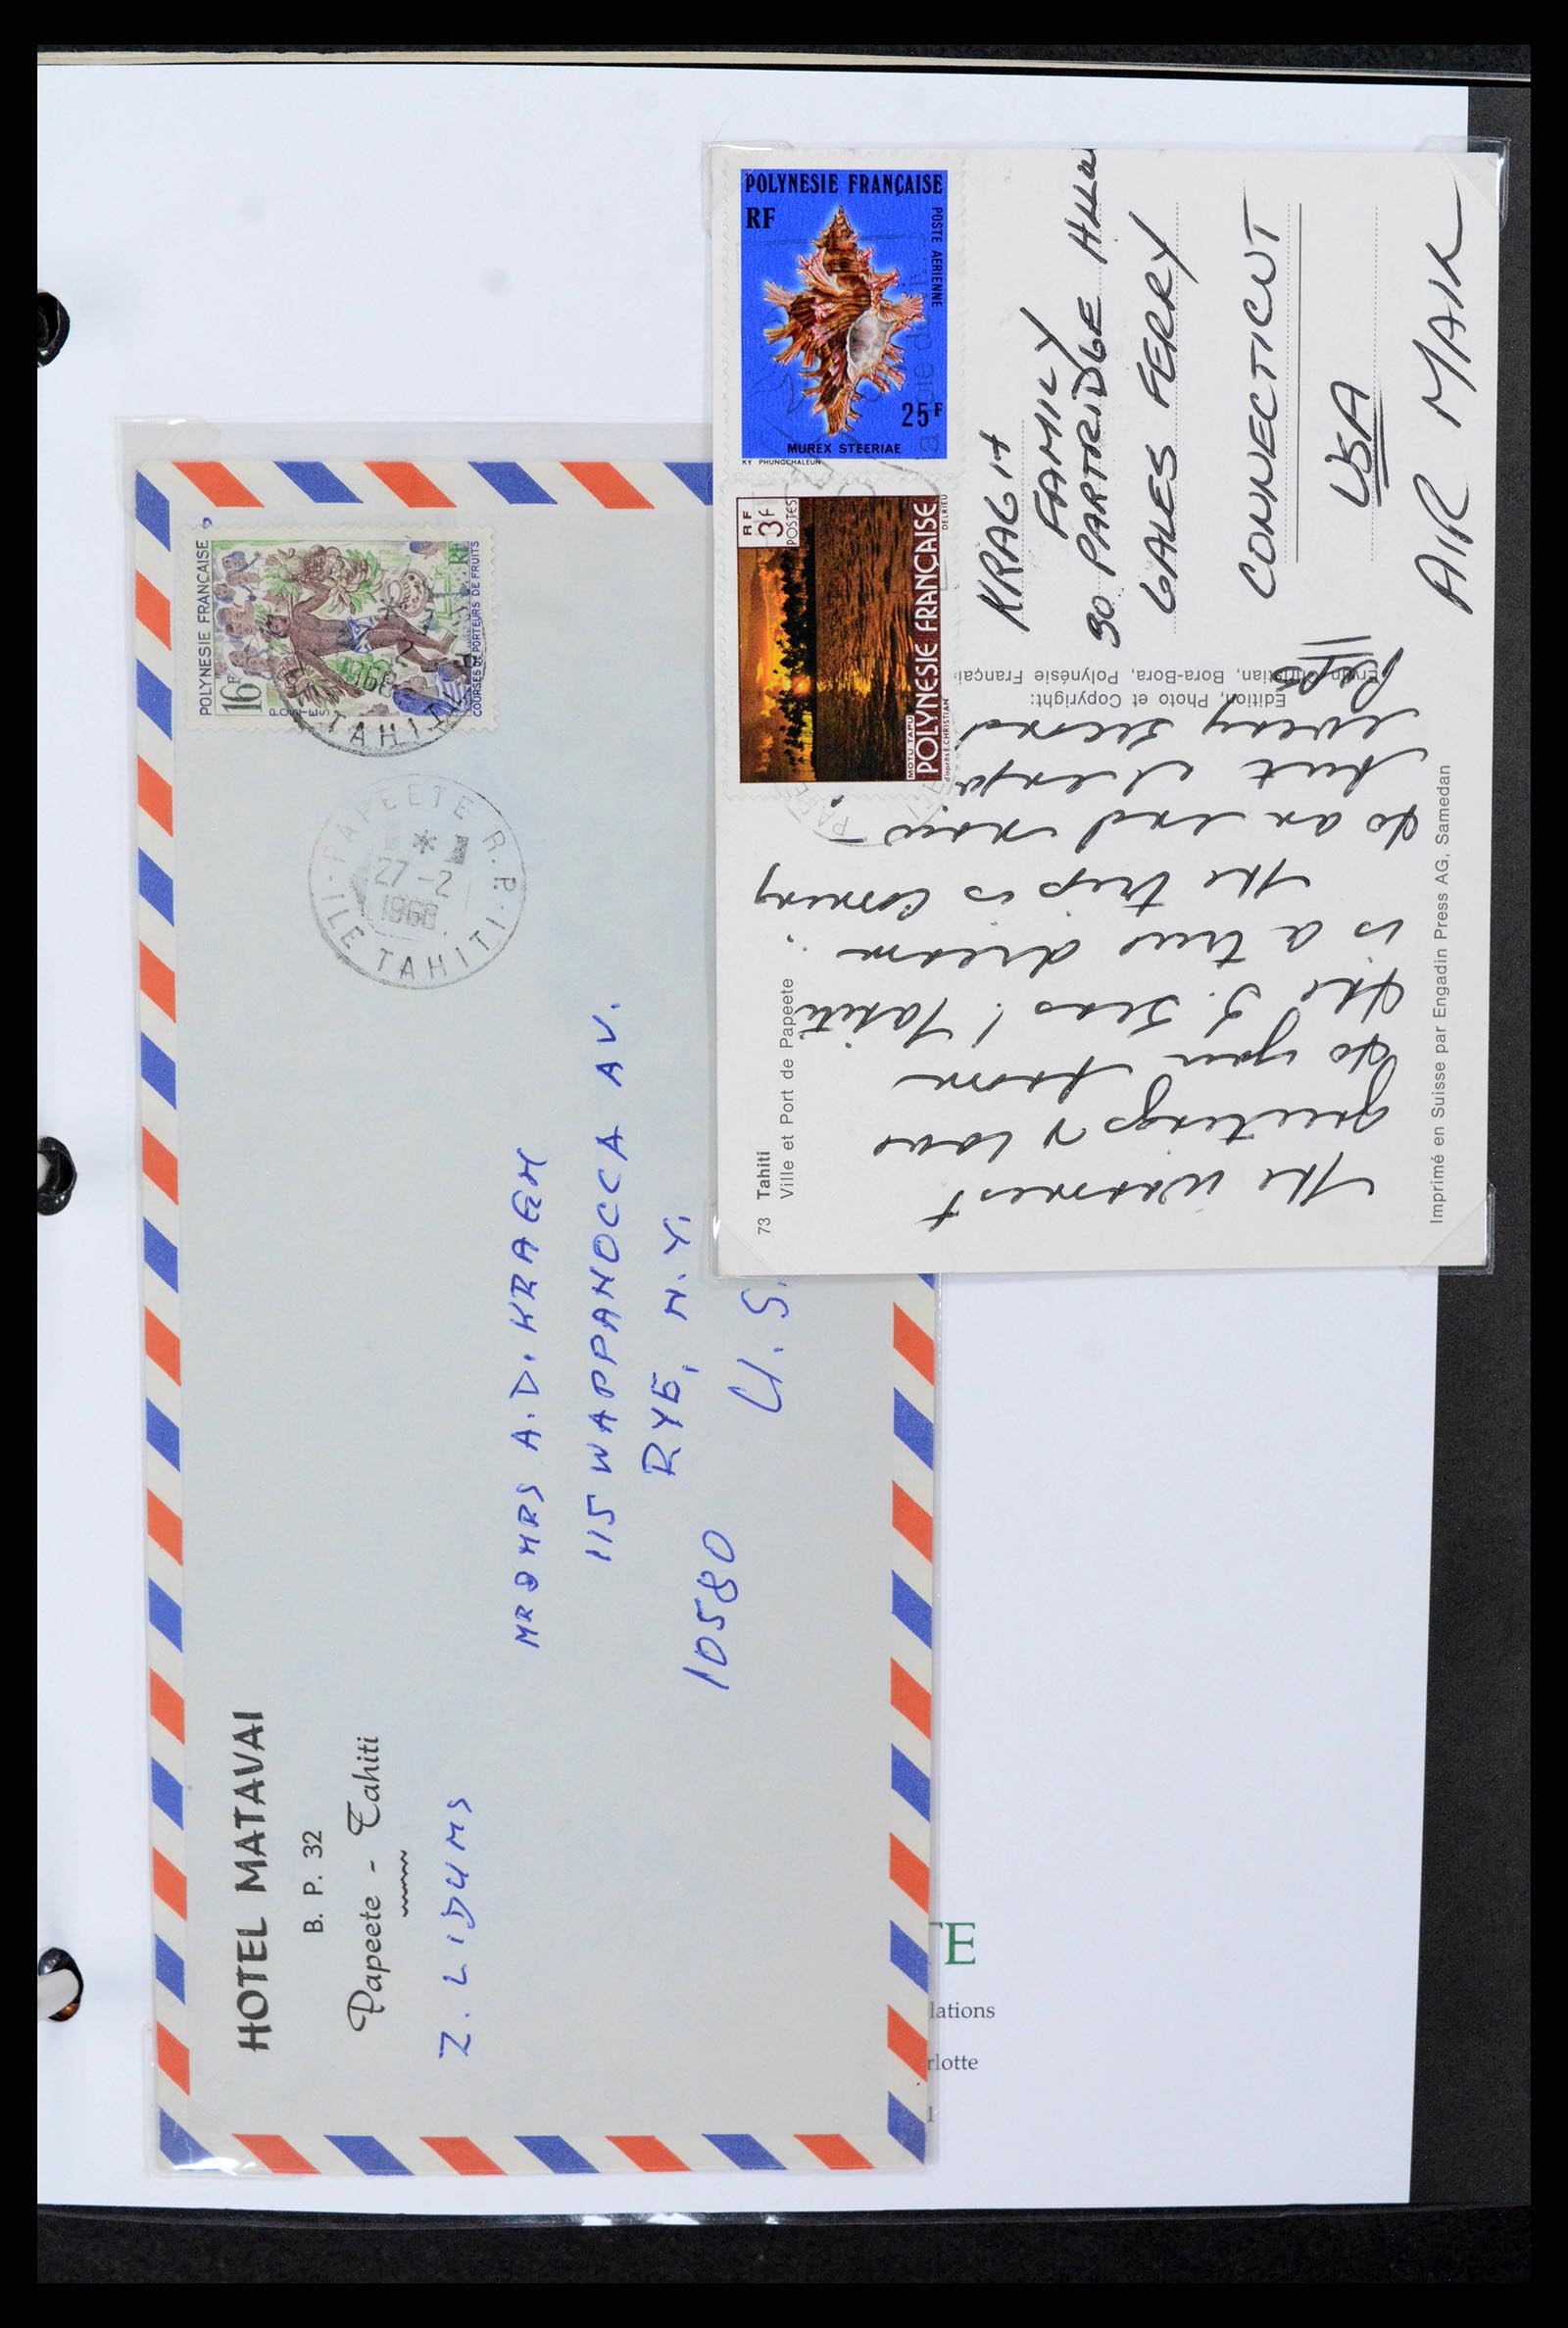 HOTEL MATAVAI
B. P. 32
Papeete - Tahiti
Z. LIDUMS
POLYNESIE FRANÇAISE
16F
POSTES
RF
COURSES DE PORTEURS DE FRUITS
1968
TAHITI
PAPEETE R.P.
*
27-2
1968
ILE TAHITI
MR & MRS A.D. KRAGH
115 WAPPANOCCA AV.
RYE, N.Y.
10580 U.S.
POLYNESIE FRANÇAISE
RF
POSTE AERIENNE
25F
MUREX STEERIAE
KY PHUNGCHALEUN
RF
3F
POSTES
MOTU TAPU
POLYNESIE FRANÇAISE
d'après E. CHRISTIAN
DELRIEU
KRAGH
FAMILY
30 PARTRIDGE
GALES FERRY
CONNECTICUT
USA
AIR MAIL
73 Tahiti
Ville et Port de Papeete
Edition, Photo et Copyright:
Erwin Christian, Bora-Bora, Polynésie Françai
Imprimé en Suisse par Engadin Press AG, Samedan
The warmest
greetings & love
to you from
the S. Seas! Tahiti
is a true dream.
The trip is coming
to an end now -
but
every second
TE
lations
rlotte